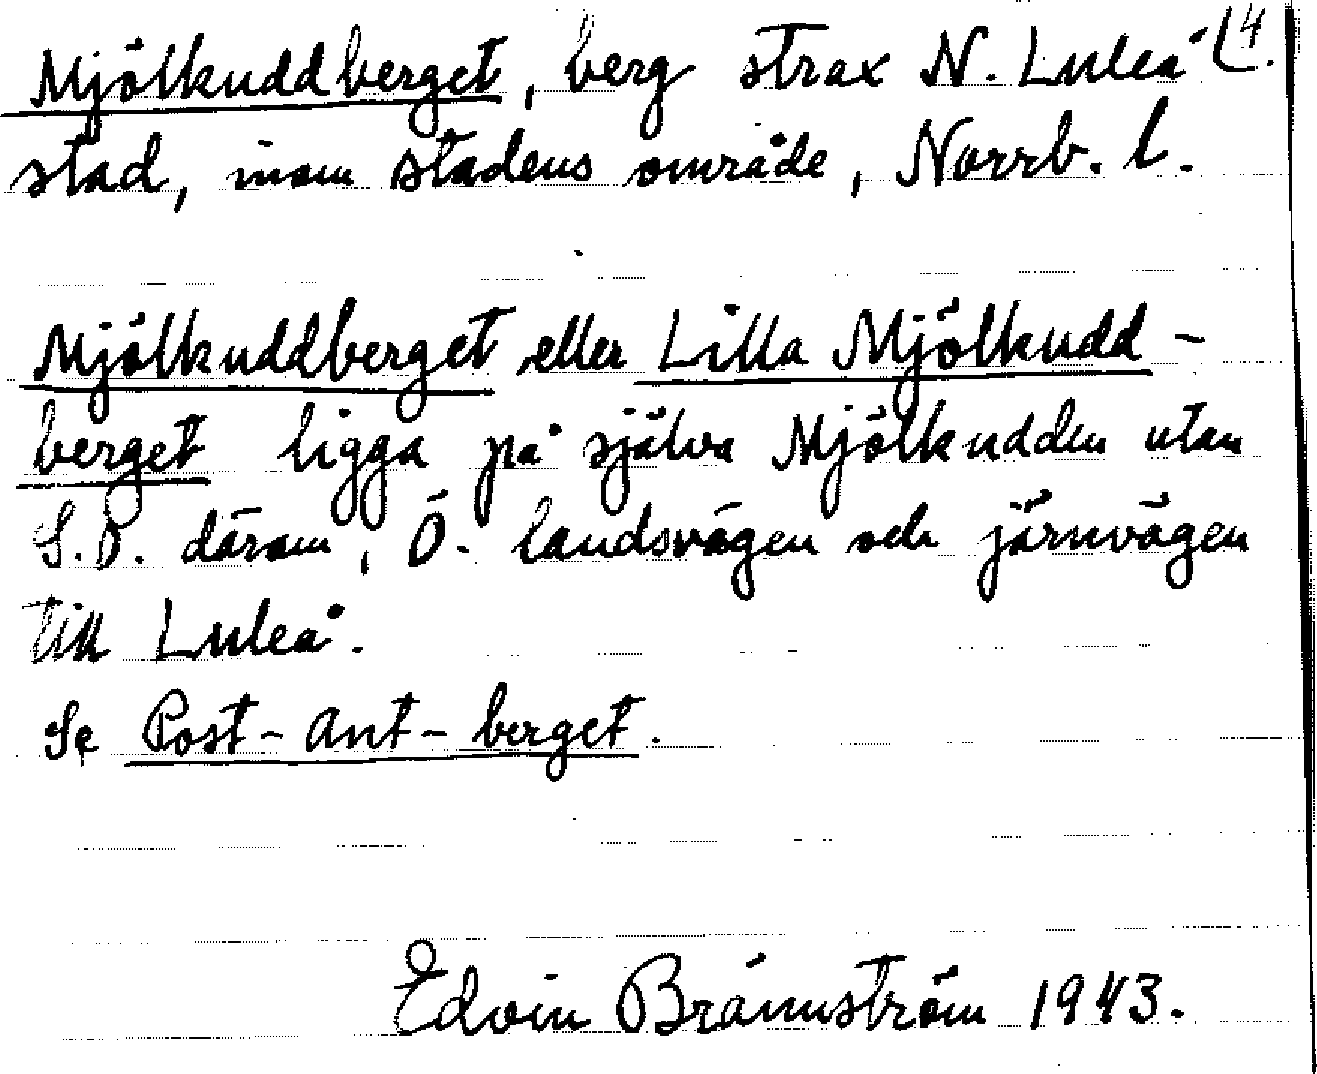 Mjölkuddberget, berg strax N. Luleå 4.
stad, inom stadens område, Norrb. l.
Mjölkuddberget eller Lilla Mjölkudd-
berget ligga på själva Mjölkudden utan
S.O. därom, Ö. landsvägen och järnvägen
till Luleå.
Se Post-Ant-berget.
Edvin Brännström 1943.